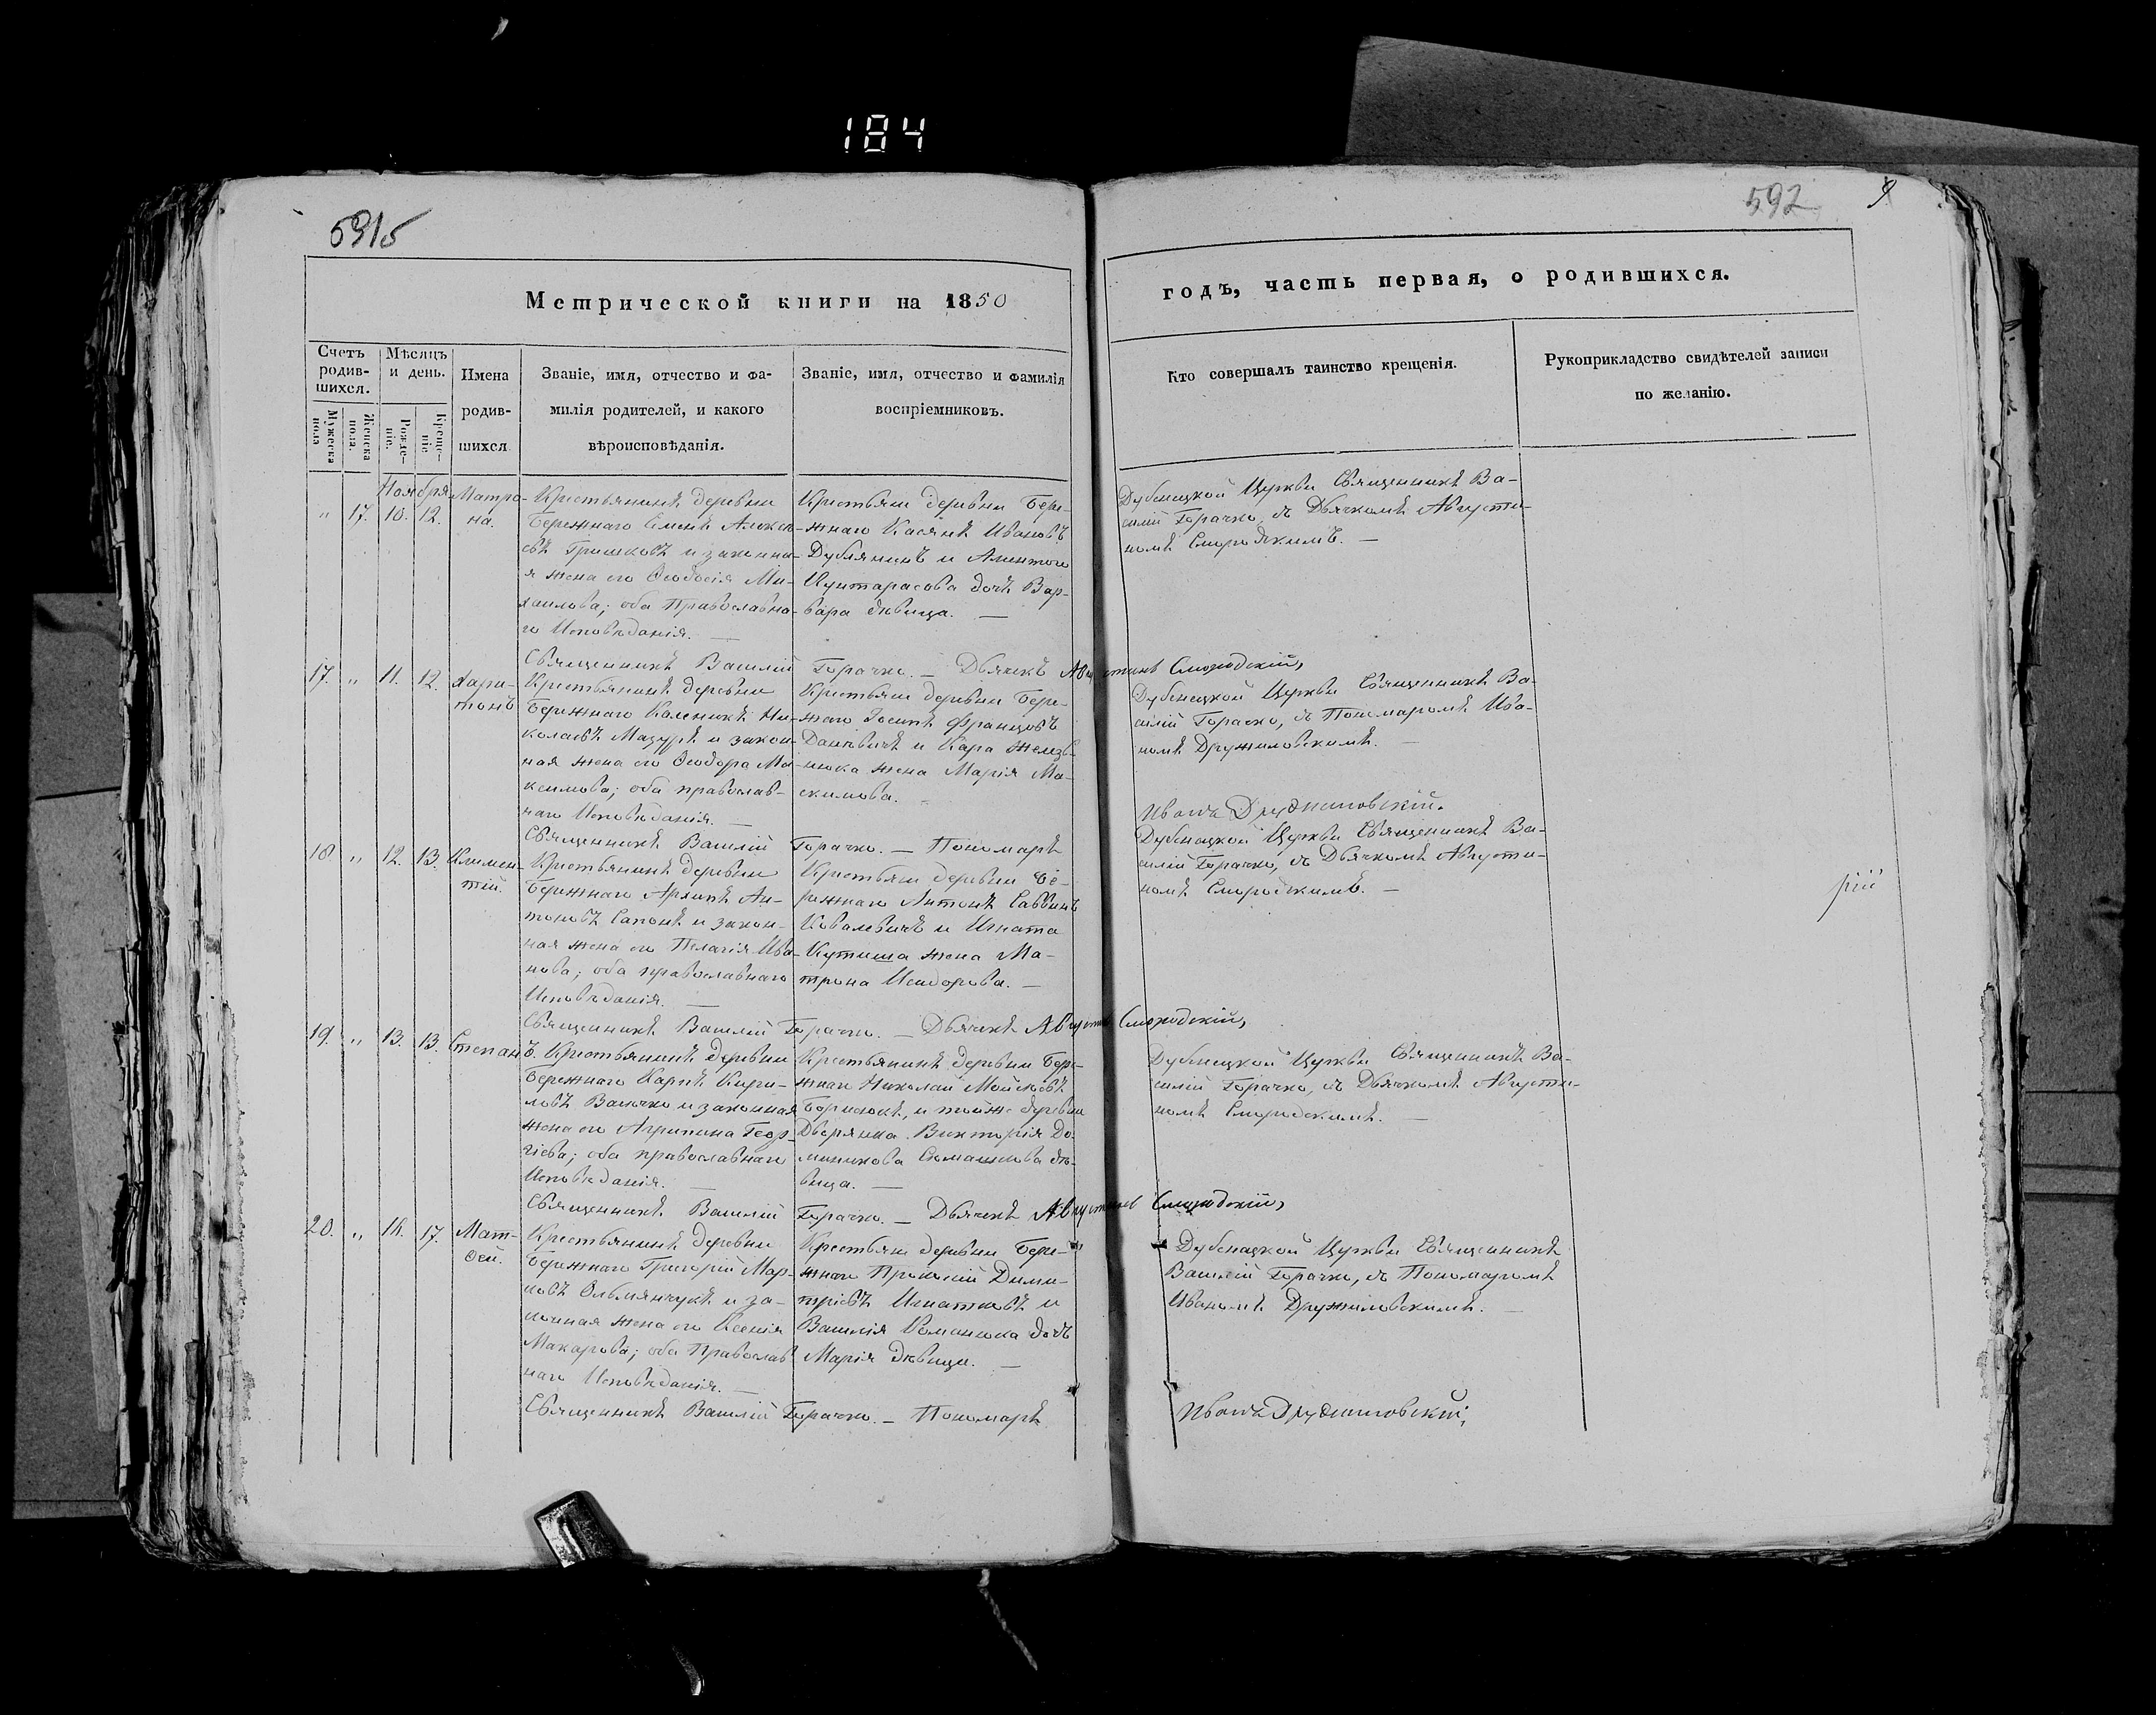 184
5915
592
9
Метрической книги на 1850
годъ, часть первая, о родившихся.
Счетъ родив-шихся.
Мѣсяцъ и день.
Имена родив-шихся
Званіе, имя, отчество и фа-
милія родителей, и какого
вѣроисповѣданія.
Званіе, имя, отчество и фамилія
воспріемниковъ.
Кто совершалъ таинство крещенія.
Рукоприкладство свидѣтелей записи
по желанію.
Мужеска пола
Женска пола.
Рожде-ніе.
Креще-ніе
Ноября
" 17. 10. 12.
Матро-
на.
Крестьянинъ деревни
Бережнаго Семенъ Алексе-
евъ Гришковъ и законна-
я жена его Ѳеодосія Ми-
хаилова; оба Православна-
го Исповѣданія. —
Крестьяне деревни Бере-
жнаго Касянъ Ивановъ
Дублянинъ и
дочь Вар-
вара дѣвица. —
Дубенецкой Церкви Священникъ Ва-
силій Горачко, съ Дьячкомъ Августи-
номъ Смородскимъ. —
Священникъ Василій Горачко. — Дьячекъ Августинъ Смородскій,
17. " 11. 12.
Хари-
тонъ
Крестьянинъ деревни
Бережнаго Каленикъ Ни-
колаевъ Мазуръ и закон-
ная жена его Ѳеодора Ма-
ксимова; оба православ-
наго Исповѣданія. —
Крестьяне деревни Бере-
жнаго Іосифъ Францовъ
Данкевичъ и
жена Марія Ма-
ксимова.
Дубенецкой Церкви Священникъ Ва-
силій Горачко, съ Пономаромъ Ива-
номъ Дружиловскимъ. —
Священникъ Василій Горачко. — Пономаръ
Иванъ Дружиловскій.
18. " 12. 13.
Климен-
тій.
Крестьянинъ деревни
Бережнаго Архипъ Ан-
тоновъ Сапонъ и закон-
ная жена его Пелагія Ива-
нова; оба православнаго
Исповѣданія. —
Крестьяне деревни Бе-
режнаго Антонъ Саввинъ
Ковалевичъ и Игната
Кутиша жена Ма-
трона Исидорова. —
Дубенецкой Церкви Священникъ Ва-
силій Горачко, съ Дьячкомъ Августи-
номъ Смородскимъ. —
Священникъ Василій Горачко. — Дьячекъ Августинъ Смородскій,
19. " 13. 13.
Степанъ.
Крестьянинъ деревни
Бережнаго Карпъ Кири-
ловъ Валючко и законная
жена его Агрипина Геор-
гіева; оба православнаго
Исповѣданія. —
Крестьянинъ деревни Бере-
жнаго Николай Мойсеевъ
Борисюкъ, и тойже деревни
Дворянка Викторія До-
миникова Симашкова дѣ-
вица. —
Дубенецкой Церкви Священникъ Ва-
силій Горачко, съ Дьячкомъ Августи-
номъ Смородскимъ. —
Священникъ Василій Горачко. — Дьячекъ Августинъ Смородскій,
20. " 16. 17.
Мат-
ѳей.
Крестьянинъ деревни
Бережнаго Григорій Мар-
ковъ Ольмянчукъ и за-
конная жена его Ксенія
Макарова; оба Православ
наго Исповѣданія. —
Крестьяне деревни Бере-
жнаго Прокопій Дими-
тріевъ Игнатовъ и
Василія Романюка дочь
Марія дѣвица. —
Дубенецкой Церкви Священникъ
Василій Горачко, съ Пономаромъ
Иваномъ Дружиловскимъ. —
Священникъ Василій Горачко. — Пономаръ
Иванъ Дружиловскій,